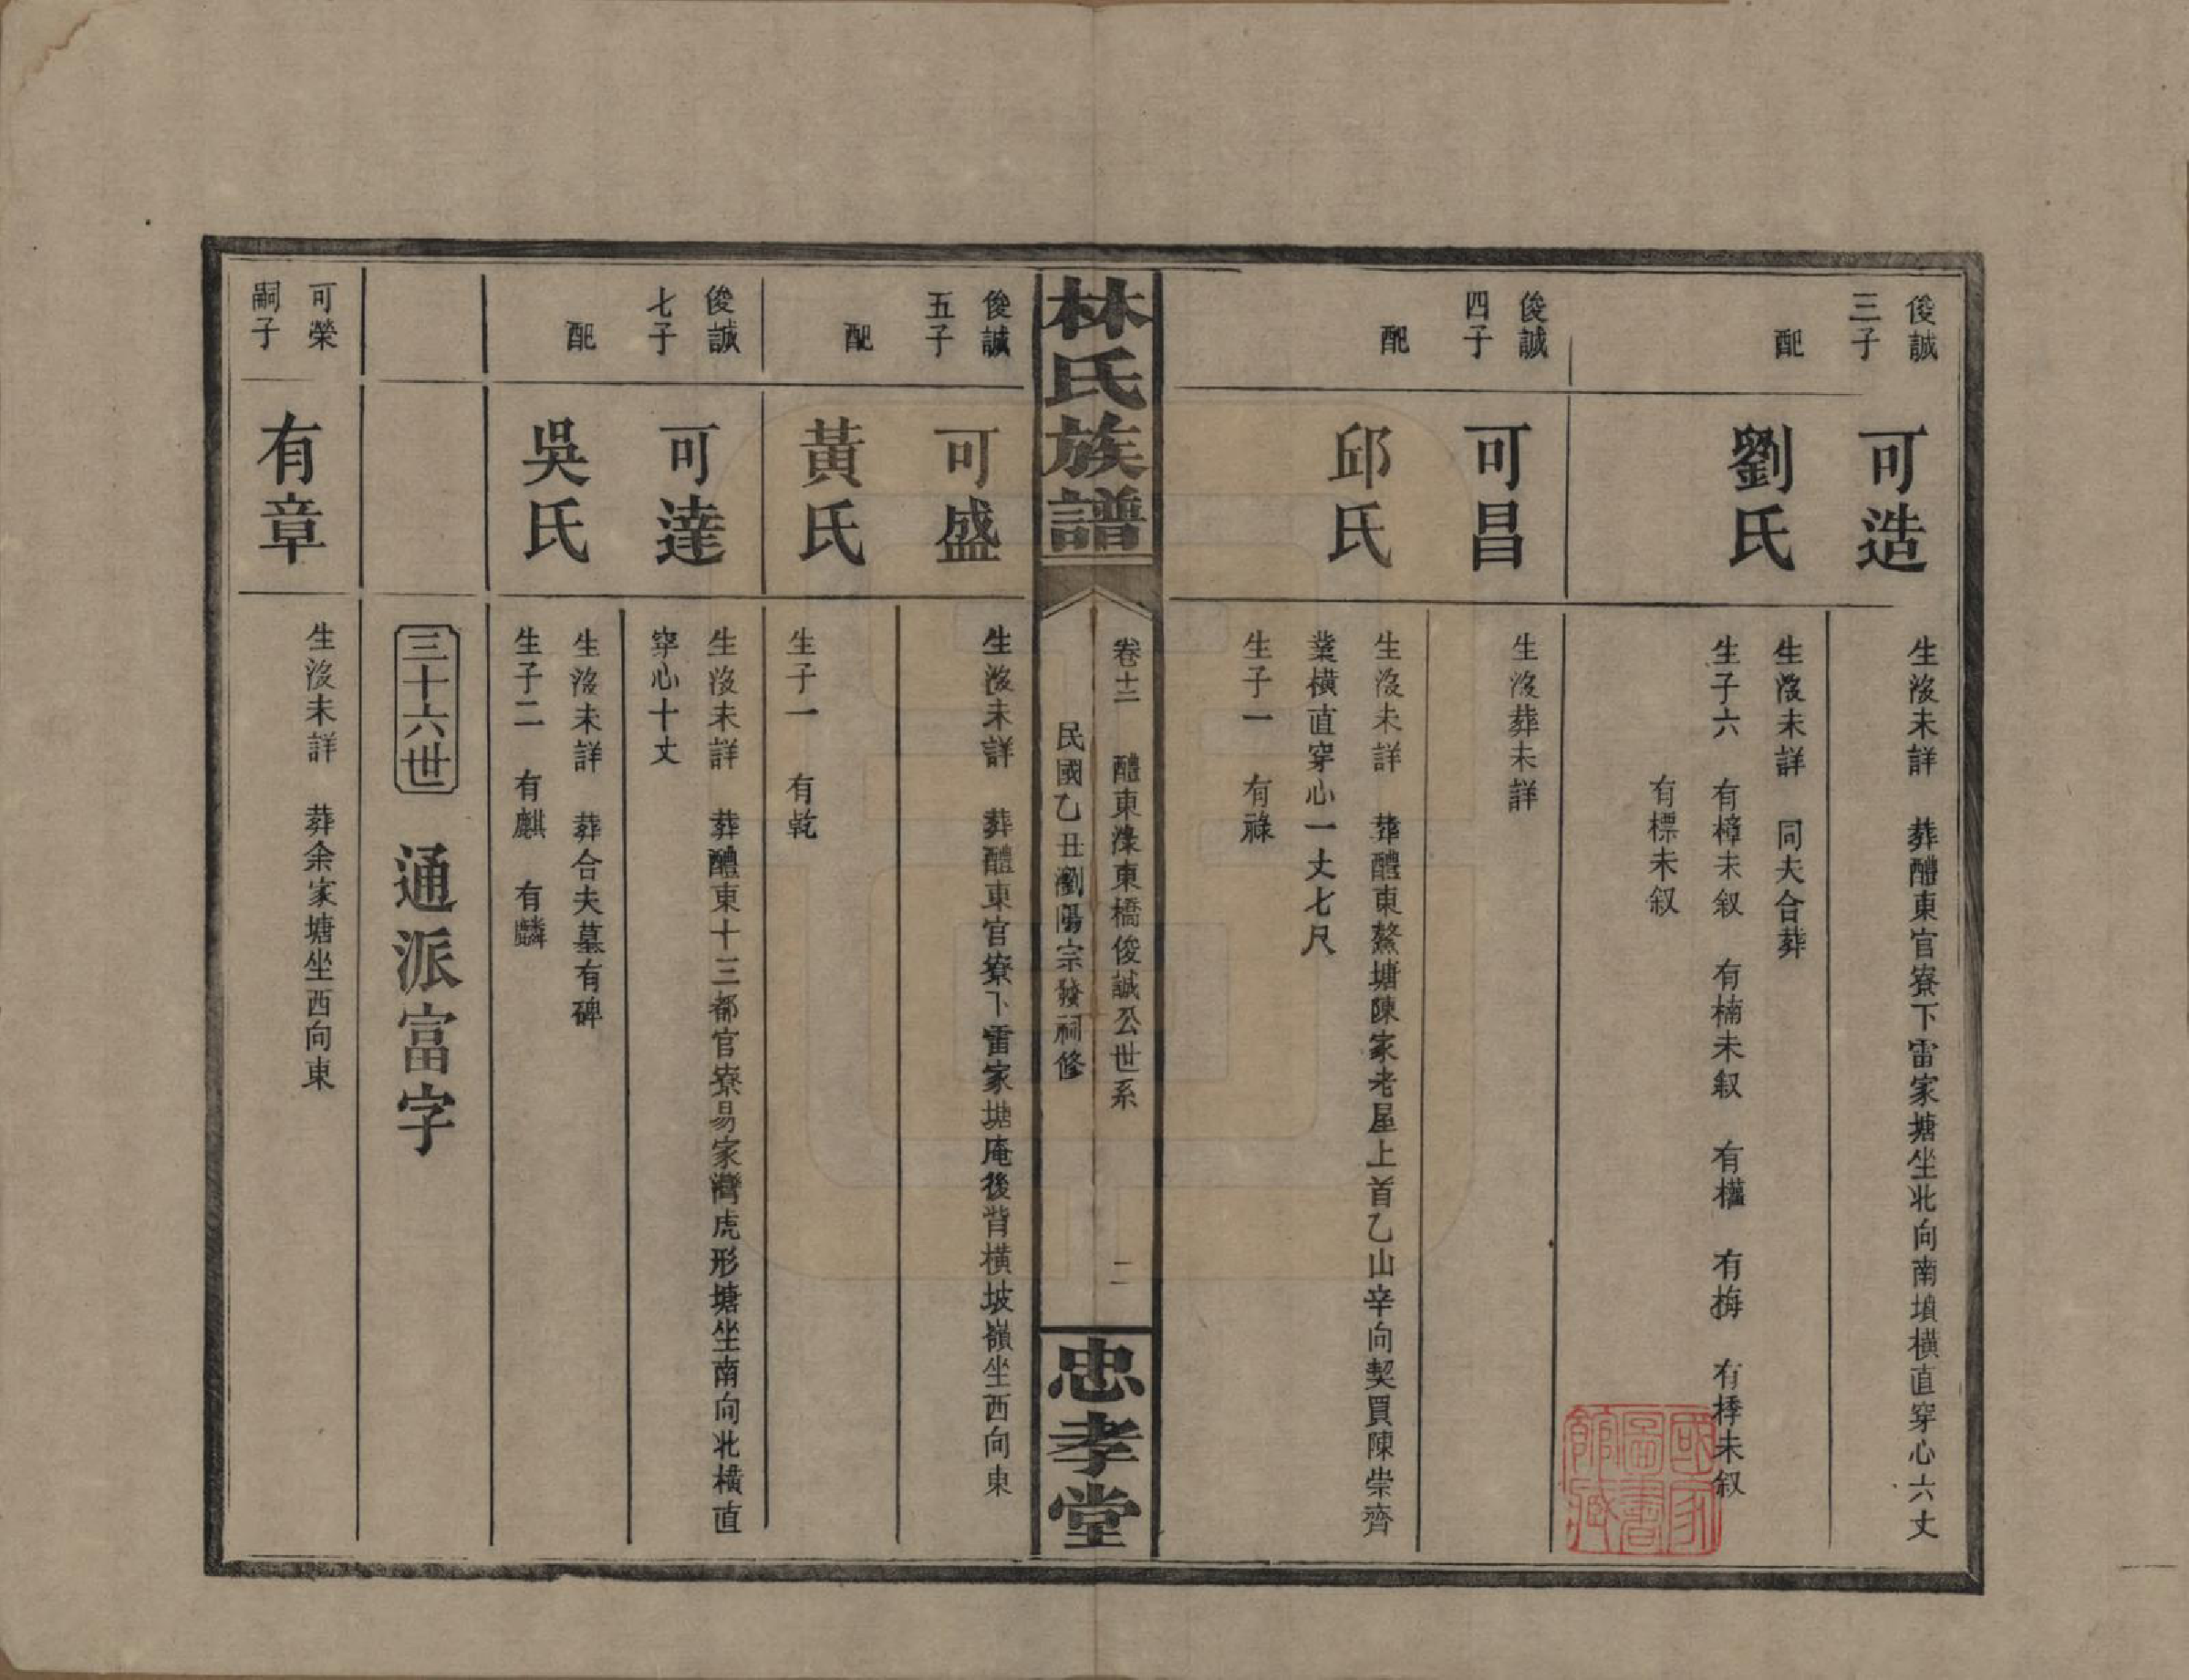 俊誠
三子
可造
生沒未詳　葬醴東官寮下雷家塘坐北向南墳橫直穿心六丈
配
劉氏
生沒未詳　同夫合葬
生子六　有樟未叙　有楠未叙　有權　有梅　有㮔未叙
有標未叙
俊誠
四子
可昌
生沒葬未詳
配
邱氏
生沒未詳　葬醴東鰲塘陳家老屋上首乙山辛向契買陳崇齊
業橫直穿心一丈七尺
生子一　有祿
林氏族譜
卷十二　醴東潻東橋俊誠公世系　二
民國乙丑瀏陽宗發祠修
忠孝堂
俊誠
五子
可盛
生沒未詳　葬醴東官寮下雷家塘庵後背橫坡嶺坐西向東
配
黃氏
生子一　有乾
俊誠
七子
可達
生沒未詳　葬醴東十三都官寮易家灣虎形塘坐南向北橫直
穿心十丈
配
吳氏
生沒未詳　葬合夫墓有碑
生子二　有麒　有麟
三十六世　通派富字
可榮
嗣子
有章
生沒未詳　葬余家塘坐西向東
國家圖書館藏